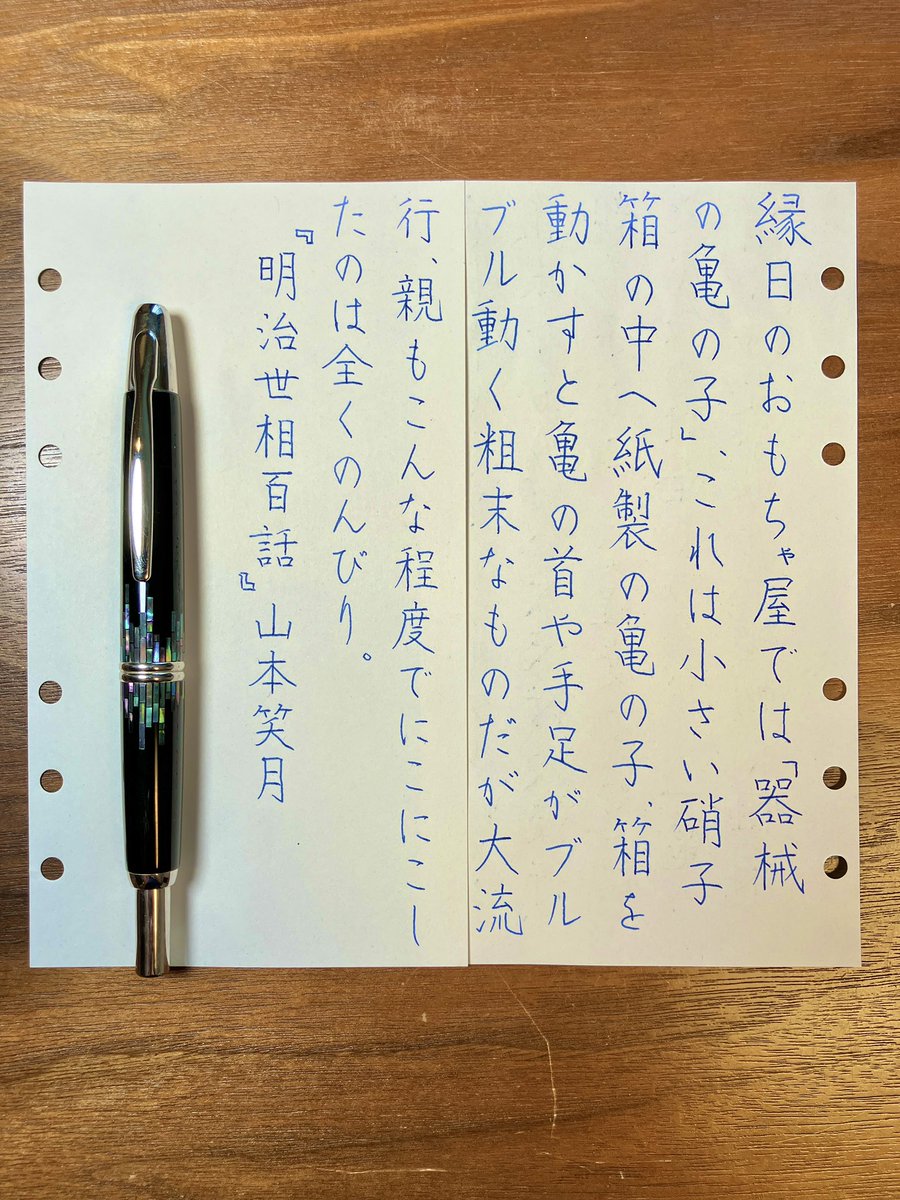 縁日のおもちゃ屋では「器械
の亀の子」、これは小さい硝子
箱の中へ紙製の亀の子、箱を
動かすと亀の首や手足がブル
ブル動く粗末なものだが大流
行、親もこんな程度でにこにこし
たのは全くのんびり。
『明治世相百話』山本笑月